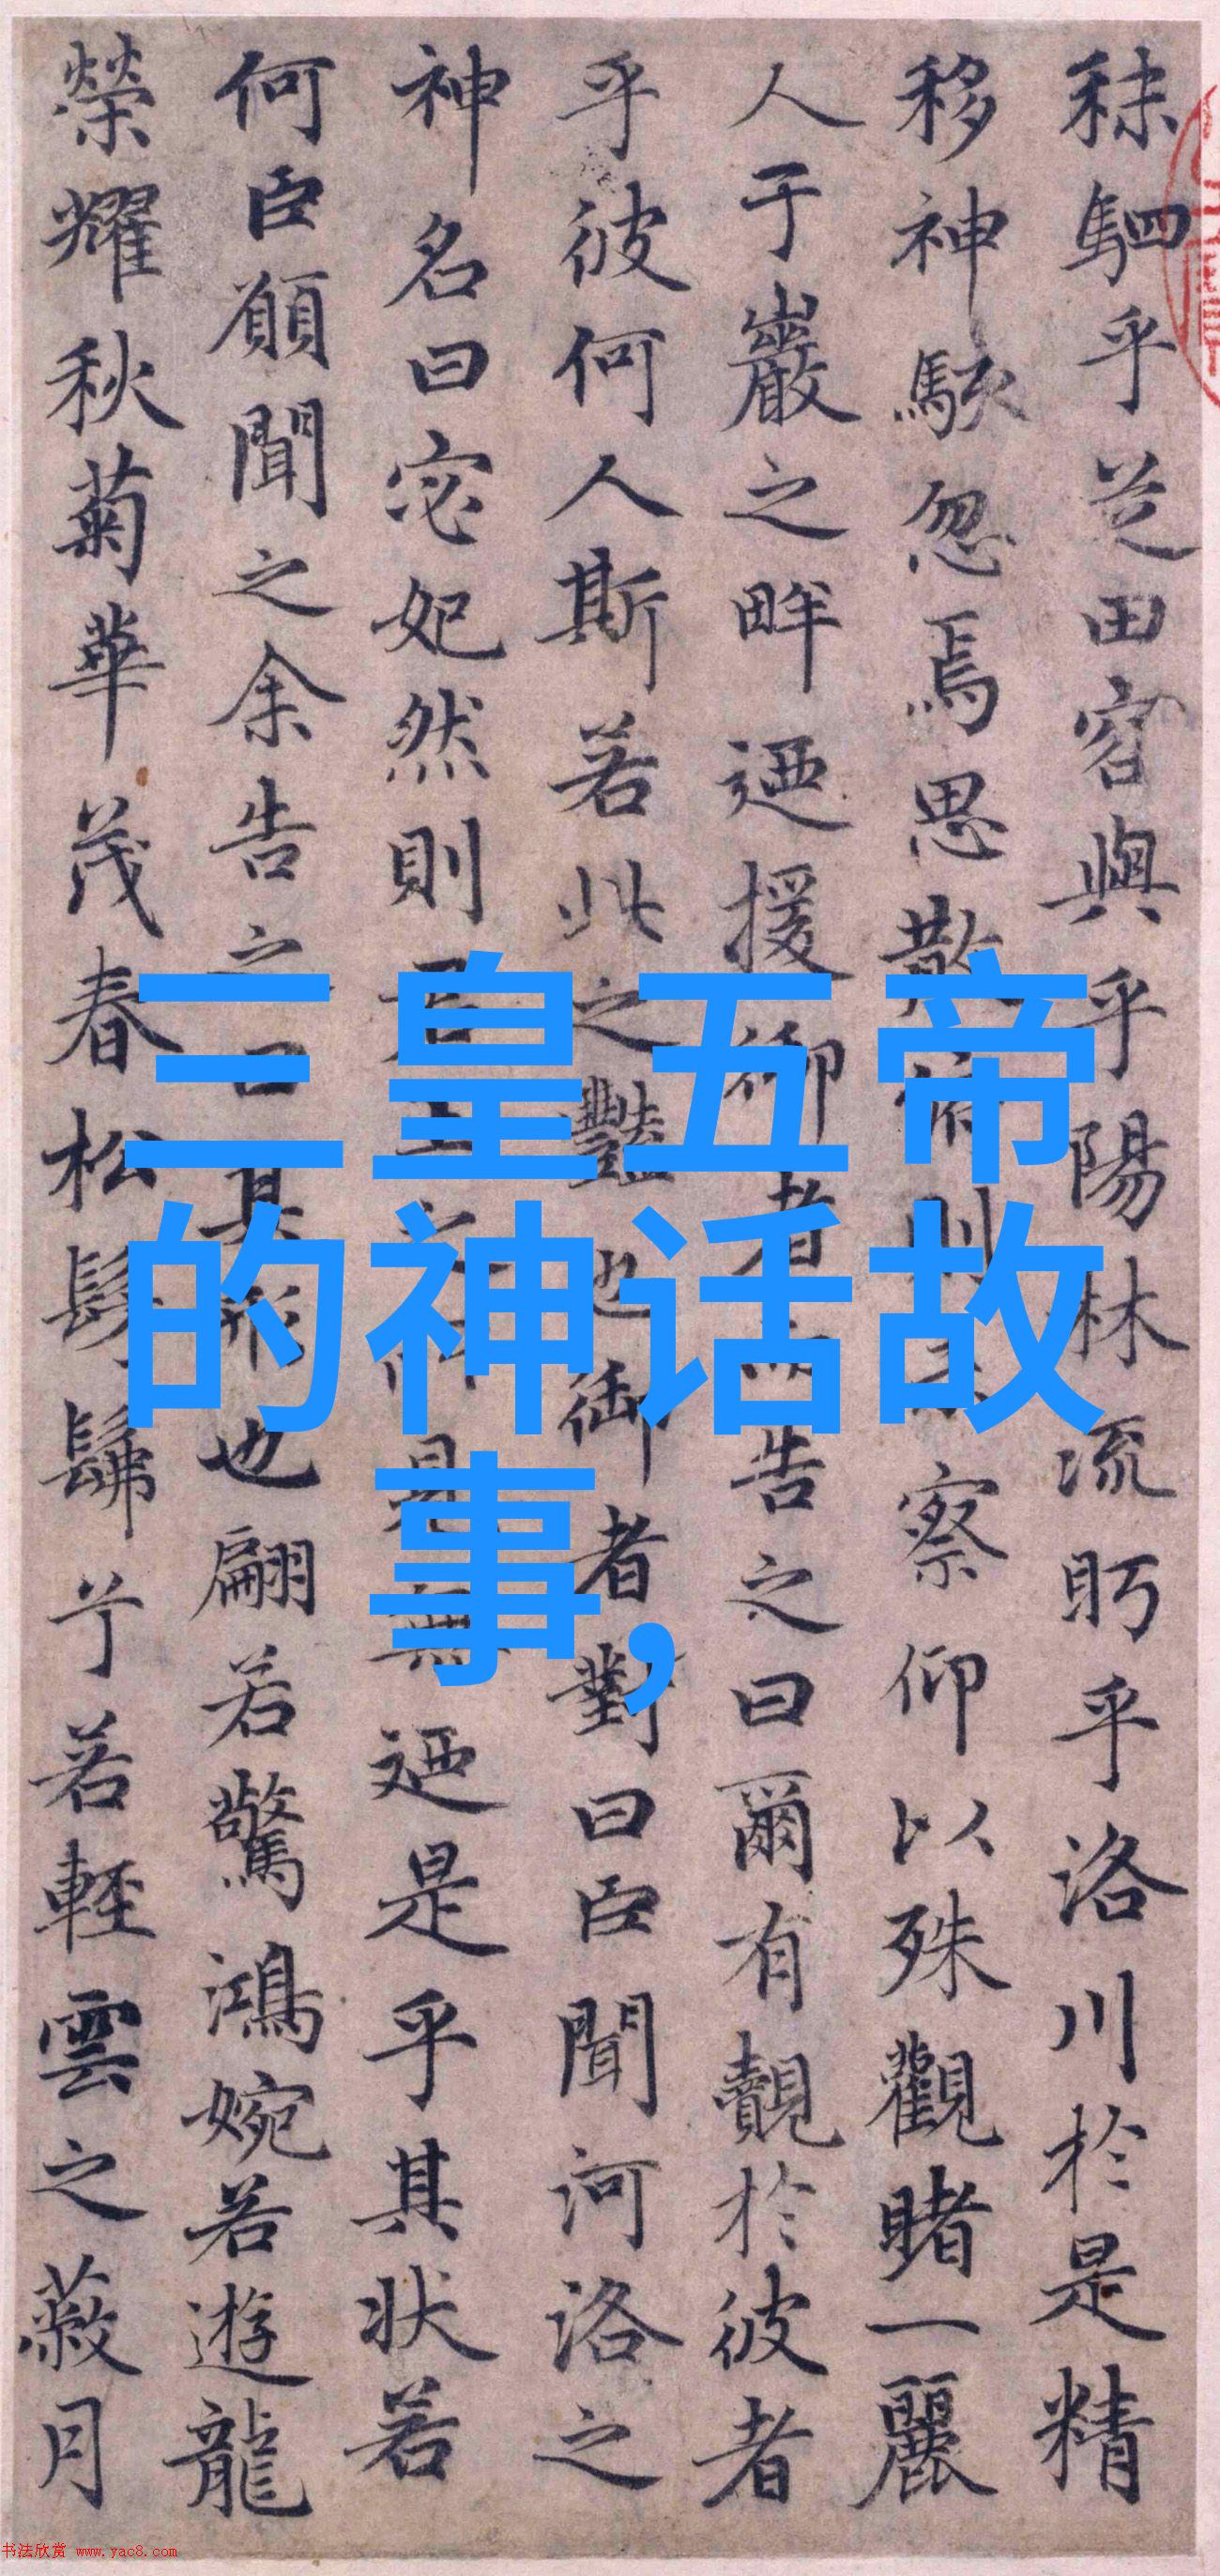 秣駟乎芝田容與乎陽林流眄乎洛川於是精
移神駭忽焉思散俯則未察仰以殊觀睹一麗
人于巖之畔迺援御者而告之曰爾有覿於彼者
乎彼何人斯若此之豔也御者對曰臣聞河洛之
神名曰宓妃然則君王之所見無迺是乎其狀若
何臣願聞之余告之曰其形也翩若驚鴻婉若遊龍
榮耀秋菊華茂春松髣髴兮若輕雲之蔽月
三皇五帝
的神话故
事,
书法欣赏 www.yac8.com